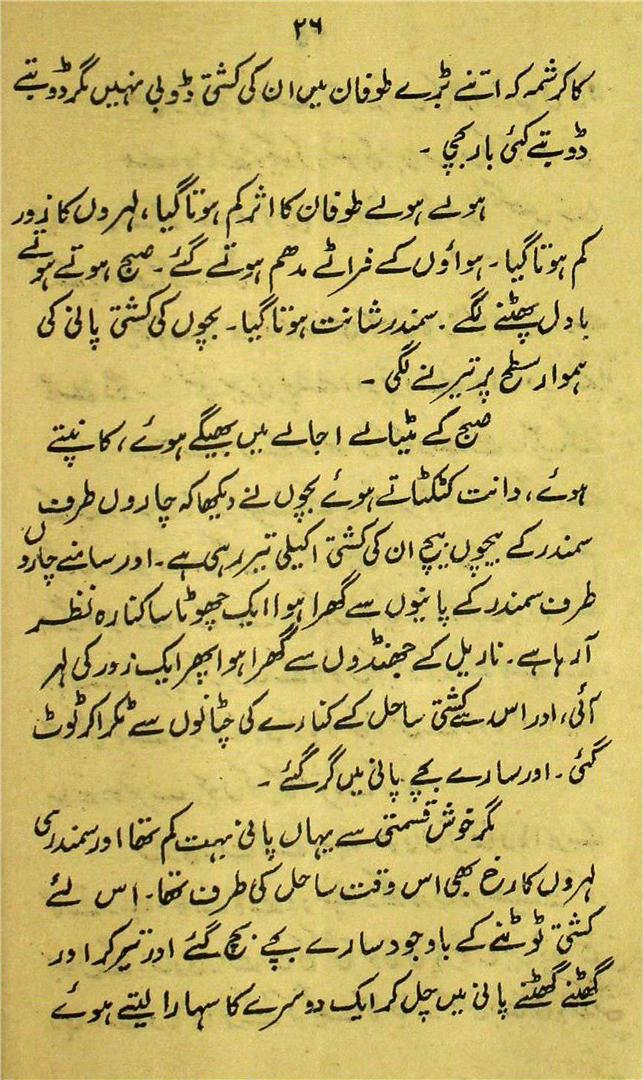 ۲۶
کا کرشمہ کہ اتنے بڑے طوفان میں ان کی کشتی ڈوبی نہیں مگر ڈوبتے
ڈوبتے کئی بار بچی ۔
ہولے ہولے طوفان کا اثر کم ہوتا گیا، لہروں کا زور
کم ہوتا گیا۔ ہواؤں کے فراٹے مدھم ہوتے گئے۔ صبح ہوتے ہوتے
بادل پھٹنے لگے۔ سمندر شانت ہوتا گیا۔ بچوں کی کشتی پانی کی
ہموار سطح پر تیرنے لگی ۔
صبح کے مٹیالے اجالے میں بھیگے ہوئے، کانپتے
ہوئے، دانت کٹکٹاتے ہوئے بچوں نے دیکھا کہ چاروں طرف
سمندر کے بیچوں بیچ ان کی کشتی اکیلی تیر رہی ہے۔ اور سامنے چاروں
طرف سمندر کے پانیوں سے گھرا ہوا ایک چھوٹا سا کنارہ نظر
آرہا ہے۔ ناریل کے جھنڈوں سے گھرا ہوا پھر ایک زور کی لہر
آئی، اور اس سے کشتی ساحل کے کنارے کی چٹانوں سے ٹکرا کر ٹوٹ
گئی۔ اور سارے بچے پانی میں گر گئے ۔
مگر خوش قسمتی سے یہاں پانی بہت کم تھا اور سمندر کی
لہروں کا رخ بھی اس وقت ساحل کی طرف تھا۔ اس لئے
کشتی ٹوٹنے کے باوجود سارے بچے بچ گئے اور تیر کر اور
گھٹنے گھٹنے پانی میں چل کر ایک دوسرے کا سہارا لیتے ہوئے